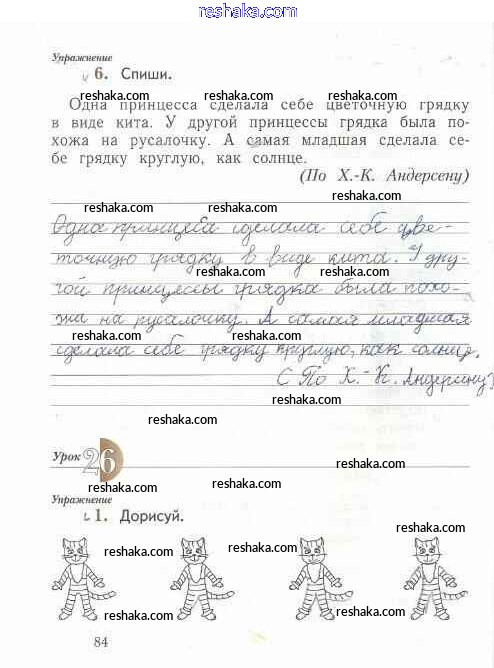 reshaka.com
Упражнение
6. Спиши.
reshaka.com reshaka.com
Одна принцесса сделала себе цветочную грядку
в виде кита. У другой принцессы грядка была по-
reshaka.com reshaka.com
хожа на русалочку. А самая младшая сделала се-
бе грядку круглую, как солнце.
reshaka.com reshaka.com
(По Х.-К. Андерсену)
reshaka.com reshaka.com
Одна принцеса сделала себе цве-
точную грядку в виде кита. У дру-
reshaka.com reshaka.com
гой принцессы грядка была похо-
жа на русалочку. А самая младшая
reshaka.com reshaka.com
сделала себе грядку круглую, как солнце.
(По Х.-К. Андерсену)
reshaka.com reshaka.com
reshaka.com
Урок 26
reshaka.com
reshaka.com
Упражнение
1. Дорисуй.
reshaka.com
reshaka.com reshaka.com
reshaka.com reshaka.com
84